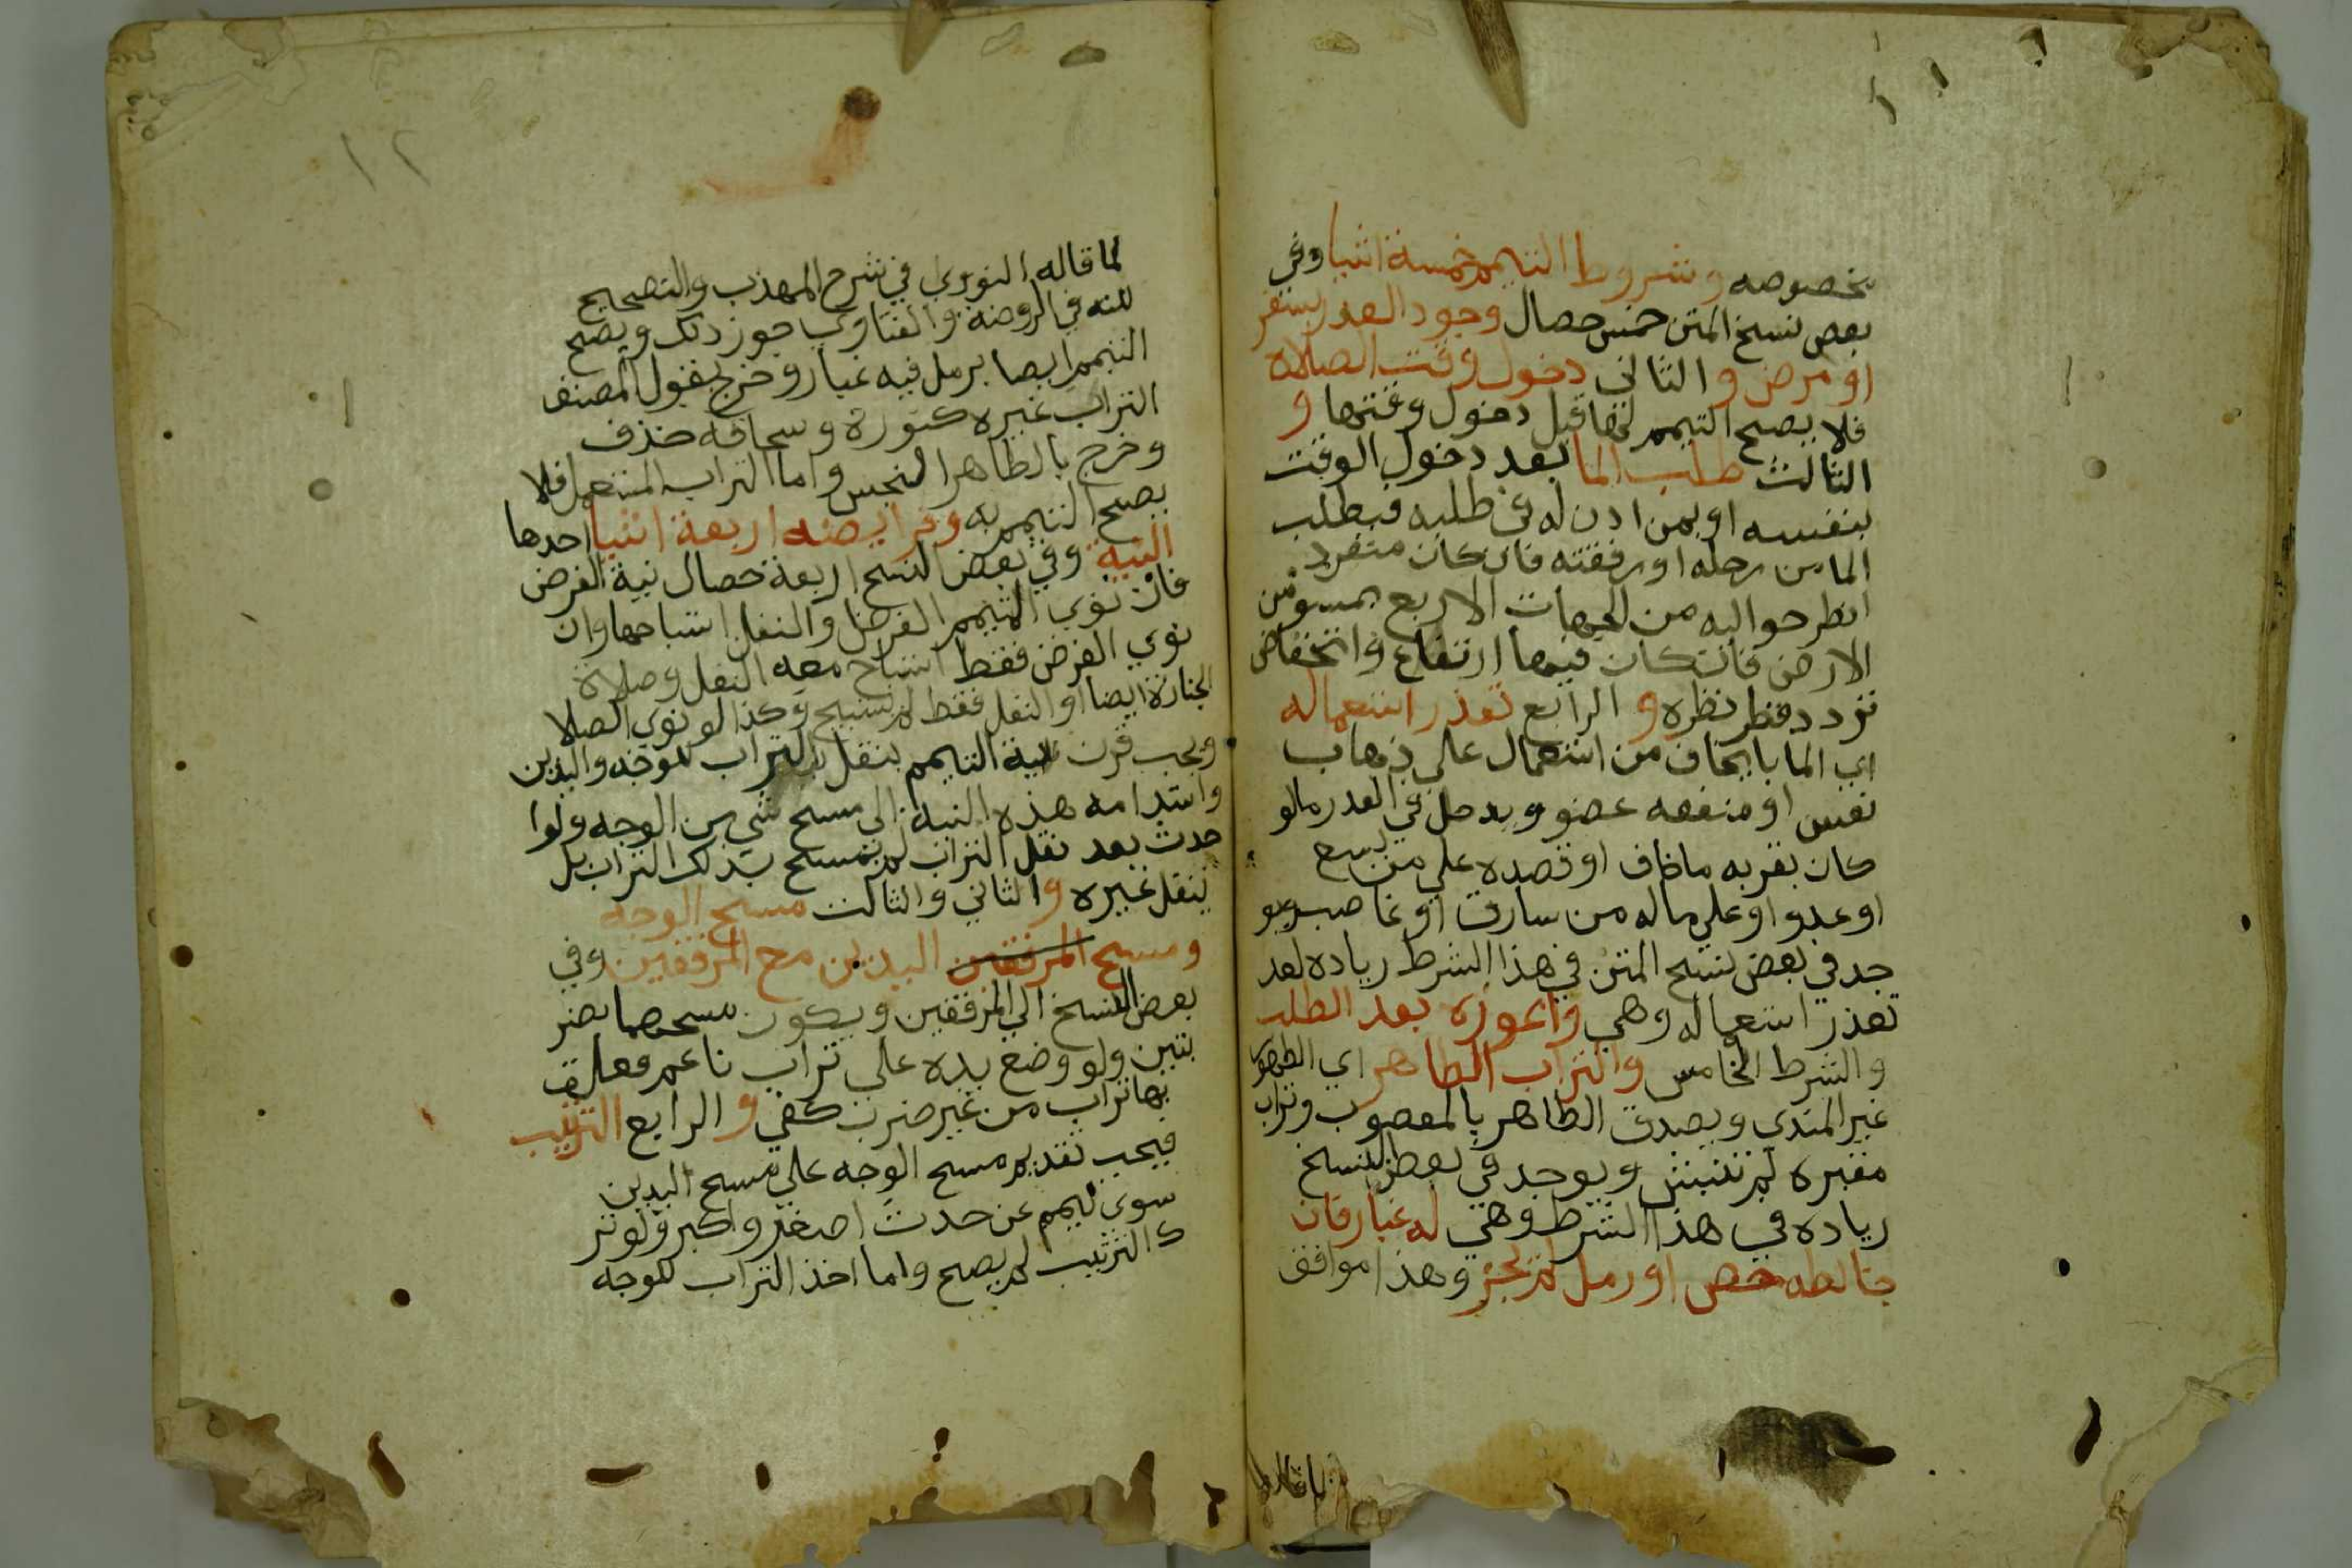 بخصوصه وشروط التيمم خمسة اشيا وفي
بعض نسخ المتن خمس خصال وجود العدر بسفر
او مرض و الثاني دخول وقت الصلاه
فلا يصح التيمم لها قبل دخول وقتها و
الثالث طلب الما بعد دخول الوقت
بنفسه او بمن ادن له في طلبه فيطلب
الما من رحله او رفقته فان كان منفرد
انظر حواليه من الجهات الاربع بمستو من
الارض فان كان فيها ارتفاع وانخفاض
تردد قدر نظره و الرابع تعذر استعماله
اي الما بايخاف من استعمال علي ذهاب
نفس او منفعه عضو ويدخل في العدر مالو
كان بقربه ما خاف او قصده علي من سبع
او عدوا وعلي ماله من سارق او غاصب ويو
جد في بعض نسخ المتن في هذا الشرط رياده بعد
تعذر استعماله وهي واعوزه بعد الطلب
والشرط الخامس والتراب الطاهر اي الطهور
غير المندي ويصدق الطاهر بالمغصوب وتراب
مقبره لم تنبش ويوجد في بعض النسخ
رياده في هذا الشرط وهي له غبار فان
خالطه جص او رمل لم يجز وهذا موافق
لما قاله
١٢
لما قاله النووي في شرح المهذب والتصحيح
لكنه في الروضة والفتاوي جوز ذلك ويصح
التيمم ايضا برمل فيه غبار وخرج بقول المصنف
التراب غيره كنورة وسحاقة خذف
وخرج بالطاهر النجس واما التراب المستعمل فلا
يصح التيمم به وفرايضه اربعة اشيا احدها
النية وفي بعض النسخ اربعة خصال نية الفرض
فان نوي المتيمم الفرض والنفل استباحها وان
نوي الفرض فقط استباح معه النفل وصلاة
الجنازة ايضا او النفل فقط لم يستبح وكذا لو نوي الصلا
ويجب قرن نية التيمم بنقل التراب للوجه واليدين
واستدامه هذه النية الي مسح شي من الوجه ولوا
حدث بعد نقل التراب لم يمسح بذلك التراب بل
ينقل غيره و الثاني والثالث مسح الوجه
ومسح المرفقين اليدين مع المرفقين وفي
بعض النسخ الي المرفقين ويكون مسحهما بضر
بتين ولو وضع يده علي تراب ناعم فعلق
بها تراب من غير ضرب كفي و الرابع الترتيب
فيجب تقديم مسح الوجه علي مسح اليدين
سوي تيمم عن حدث اصغر واكبر ولو تر
ك الترتيب لم يصح واما اخذ التراب للوجه